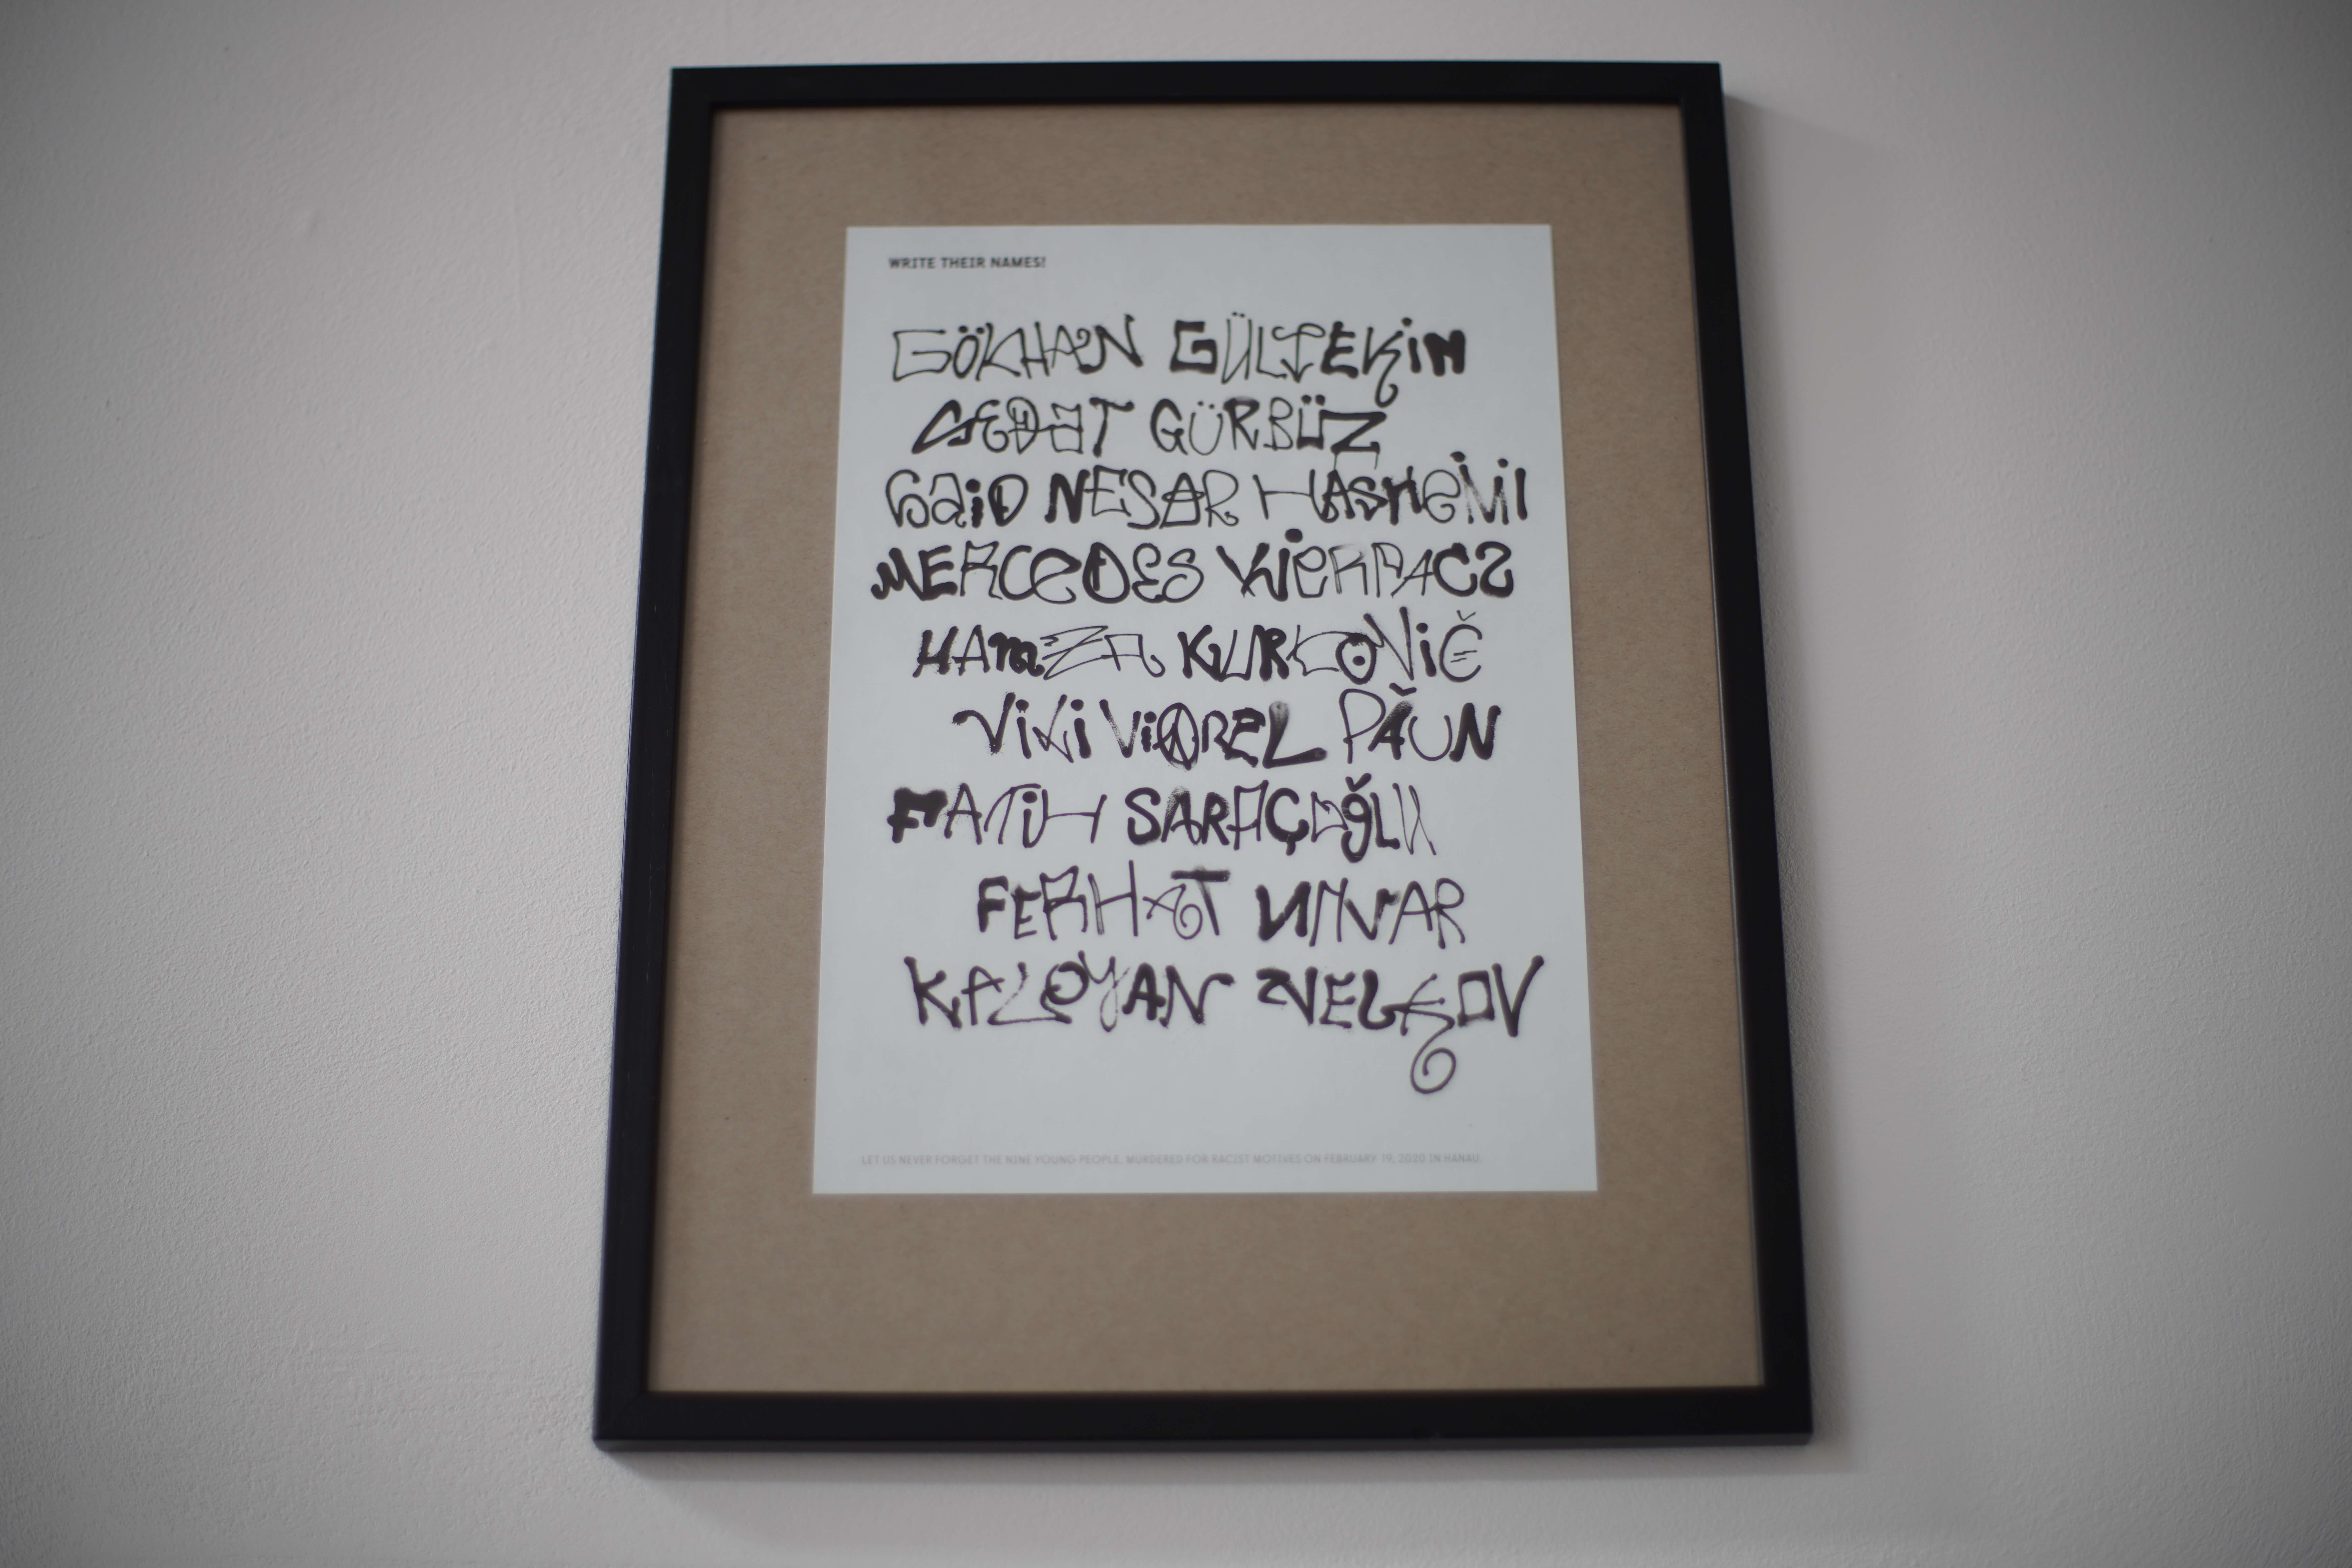 WRITE THEIR NAMES!
GÖKHAN GÜLTEKiN
SEDaT GÜRBÜZ
SaiD NESAR HASHeMI
MERCeDES KiERPACZ
HAmZA KURTOViĆ
ViLi ViOREL PĂUN
FATiH SARAÇOğLU
FERHAT UNVAR
KALOYAN VELKOV
LET US NEVER FORGET THE NINE YOUNG PEOPLE, MURDERED FOR RACIST MOTIVES ON FEBRUARY 19, 2020 IN HANAU.